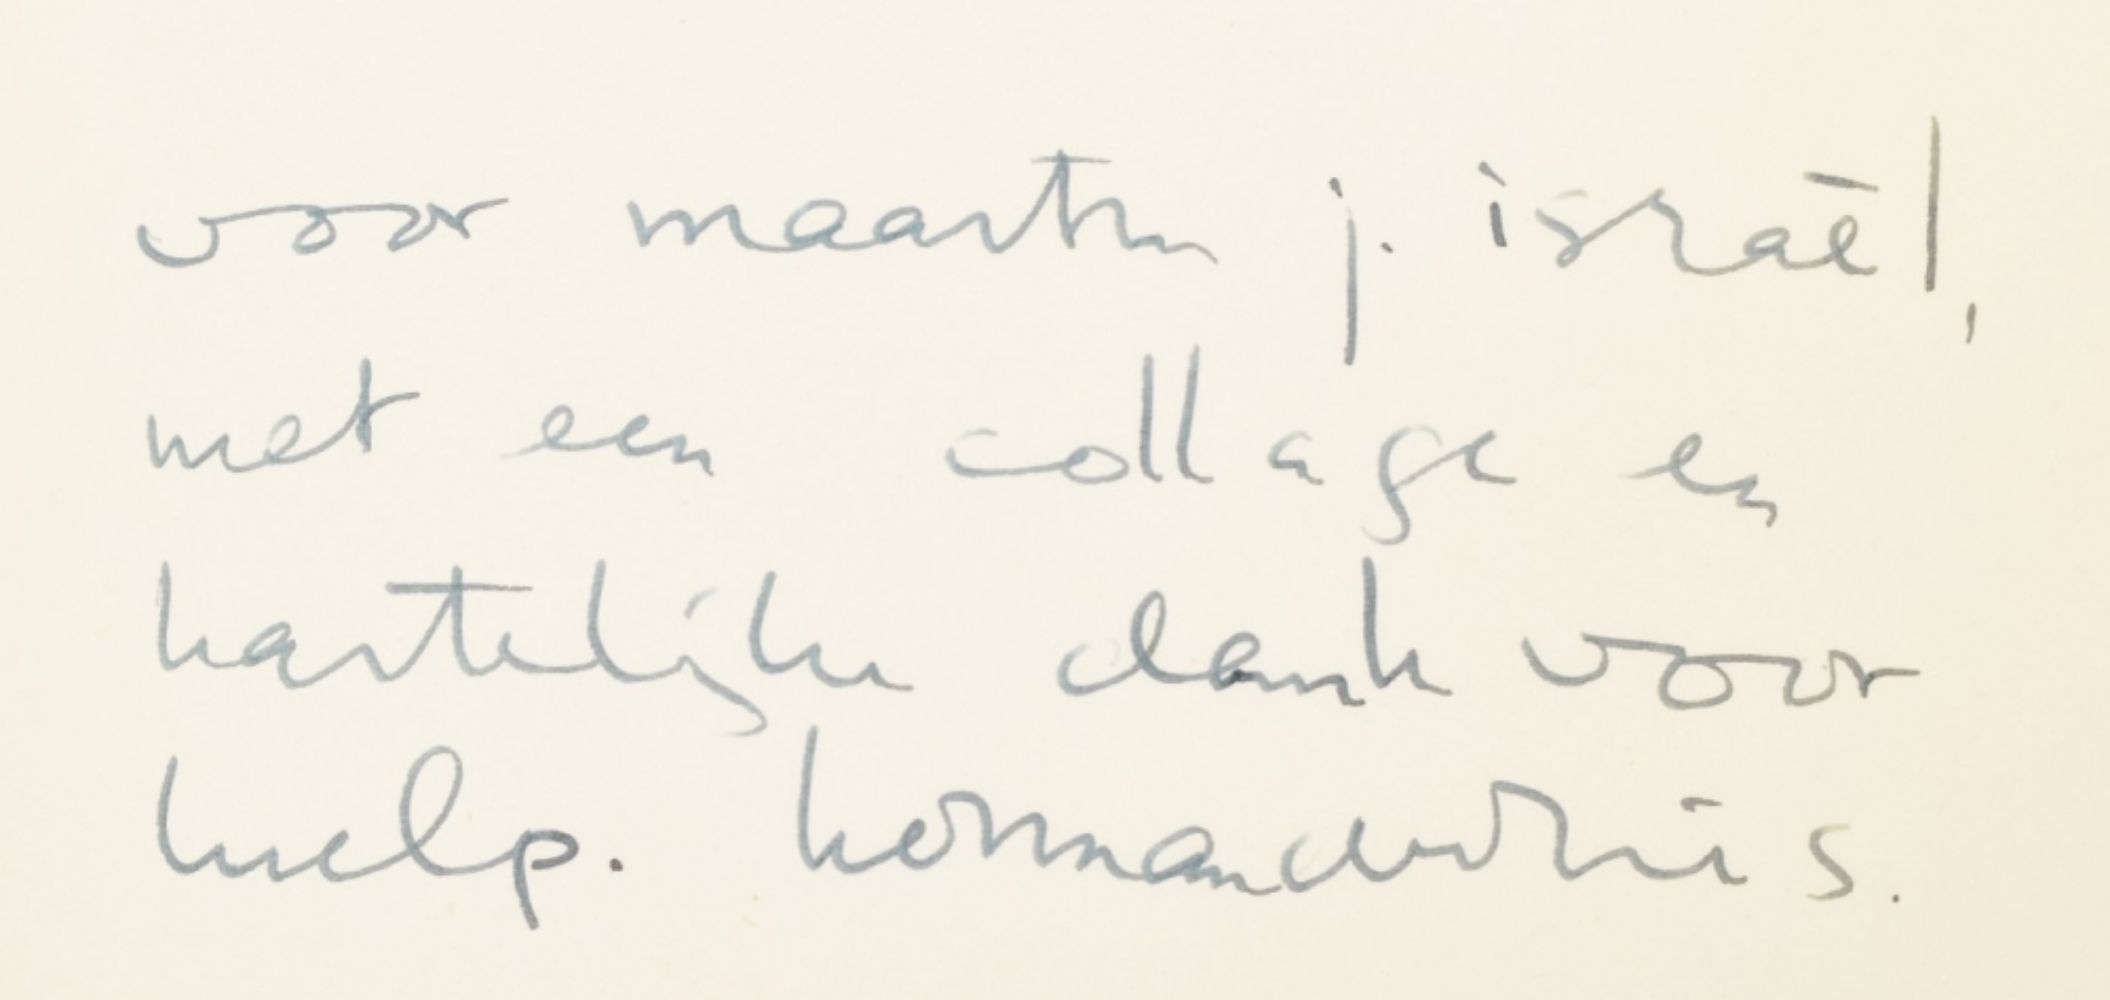 voor maarten j. israël,
met een collage en
hartelijke dank voor
hulp. hermandevries.